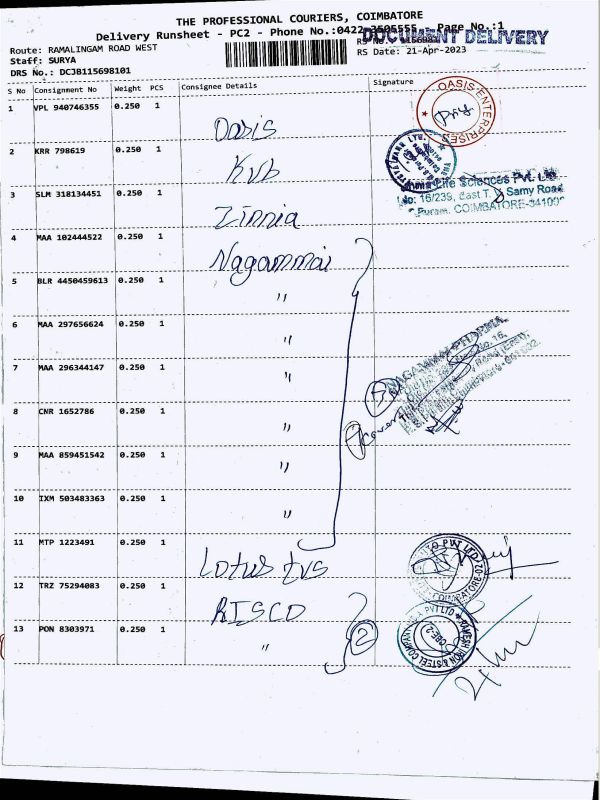 THE PROFESSIONAL COURIERS, COIMBATORE
Delivery Runsheet - PC2 - Phone No.:0422 Page No.:1
DOCUMENT DELIVERY
Route: RAMALINGAM ROAD WEST
Staff: SURYA RS Date: 21-Apr-2023
DRS No.: DCJB115698101
S No Consignment No Weight PCS Consignee Details Signature
1 VPL 940746355 0.250 1 Oasis
OASIS ENTERPRISES
2 KRR 798619 0.250 1 KVB
3 SLM 318134451 0.250 1 Zinnia
Life Sciences Pvt. Ltd
No: 16/239, East T. Samy Road
Puram, COIMBATORE-64100
4 MAA 102444522 0.250 1 Nagammai
5 BLR 4450459613 0.250 1 "
6 MAA 297656624 0.250 1 "
NAGAMMAI PHARMA
7 MAA 296344147 0.250 1 "
7
8 CNR 1652786 0.250 1 "
7 Cover
9 MAA 859451542 0.250 1 "
10 IXM 503483363 0.250 1 "
11 MTP 1223491 0.250 1 Lotus tvs
PVT LTD
COIMBATORE
12 TRZ 75294083 0.250 1 RISCO
13 PON 8303971 0.250 1 "
2
RAMESH IRON & STEEL COMPANY PVT LTD
CBE-2